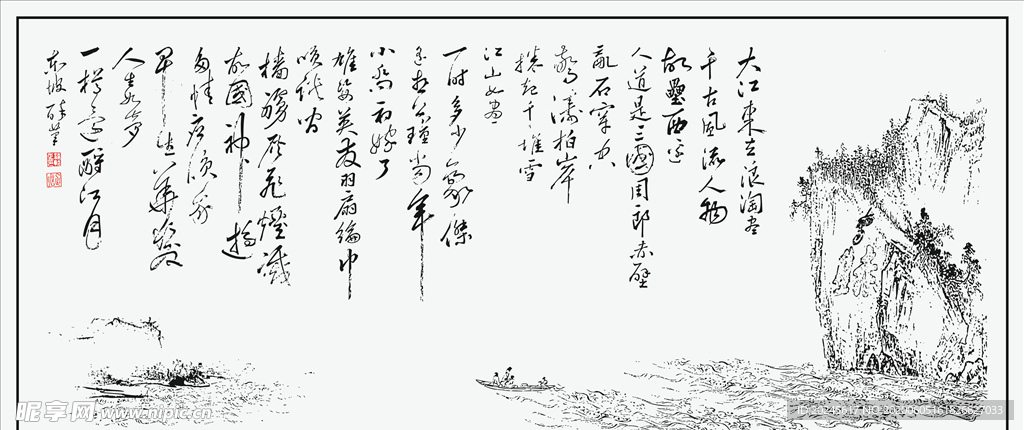 大江東去浪淘盡
千古風流人物
故壘西邊
人道是三國周郎赤壁
亂石穿空
驚濤拍岸
捲起千堆雪
江山如畫
一時多少豪傑
遙想公瑾當年
小喬初嫁了
雄姿英發羽扇綸巾
笑談間
檣艣灰飛煙滅
故國神遊
多情應笑我
早生華髮
人生如夢
一樽還酹江月
東坡醉筆
昵享网 www.nipic.cn